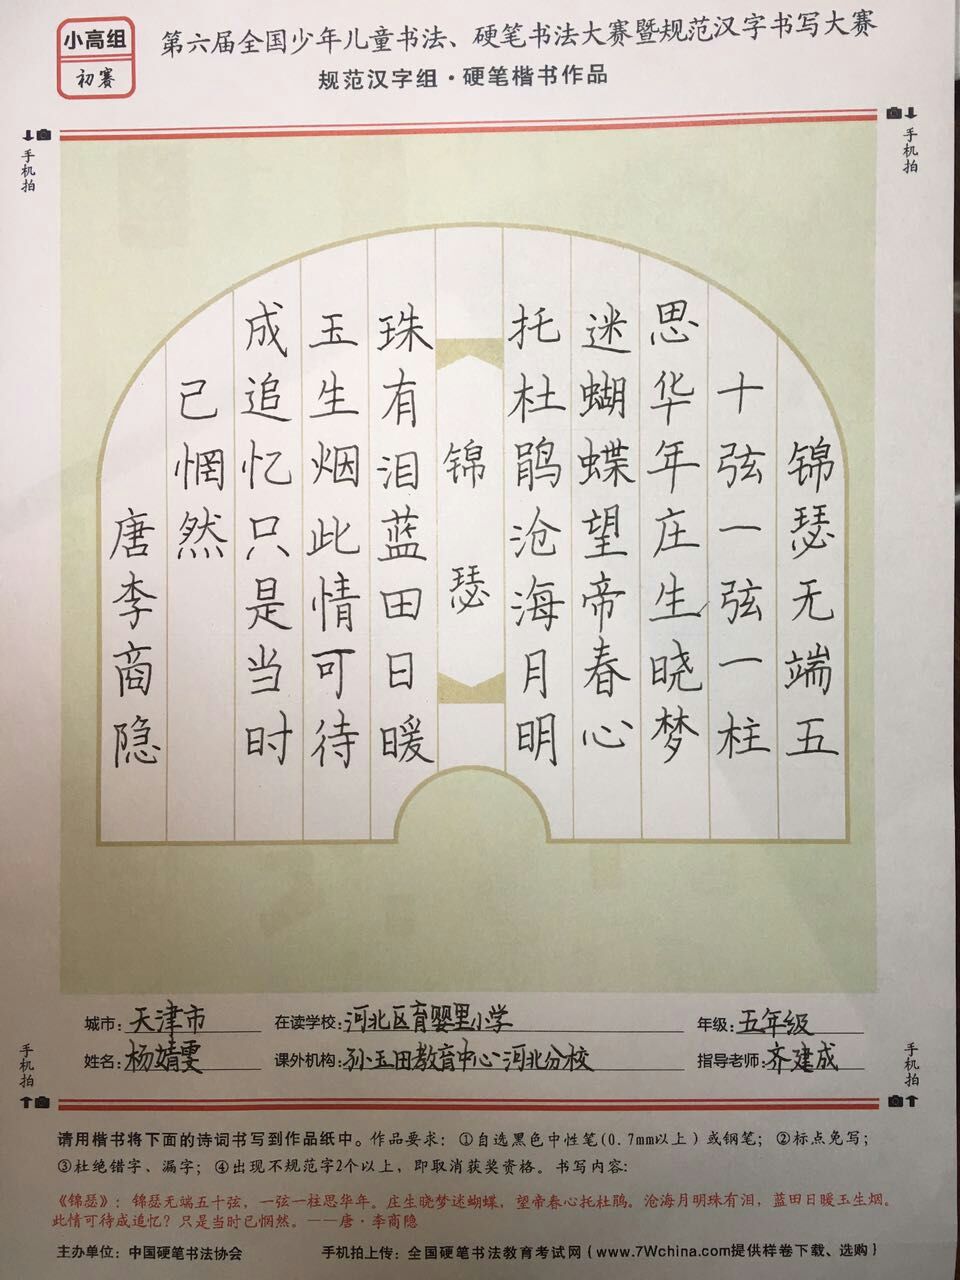 小高组
初赛
第六届全国少年儿童书法、硬笔书法大赛暨规范汉字书写大赛
规范汉字组·硬笔楷书作品
手机拍
手机拍
锦瑟无端五
十弦一弦一柱
思华年庄生晓梦
迷蝴蝶望帝春心
托杜鹃沧海月明
锦瑟
珠有泪蓝田日暖
玉生烟此情可待
成追忆只是当时
已惘然
唐李商隐
城市：天津市 在读学校：河北区育婴里小学 年级：五年级
姓名：杨婧雯 课外机构：孙玉田教育中心河北分校 指导老师：齐建成
手机拍
手机拍
请用楷书将下面的诗词书写到作品纸中。作品要求：①自选黑色中性笔(0.7mm以上)或钢笔；②标点免写；
③杜绝错字、漏字；④出现不规范字2个以上，即取消获奖资格。书写内容：
《锦瑟》：锦瑟无端五十弦，一弦一柱思华年。庄生晓梦迷蝴蝶，望帝春心托杜鹃。沧海月明珠有泪，蓝田日暖玉生烟。
此情可待成追忆？只是当时已惘然。——唐·李商隐
主办单位：中国硬笔书法协会 手机拍上传：全国硬笔书法教育考试网{www.7Wchina.com提供样卷下载、选购}